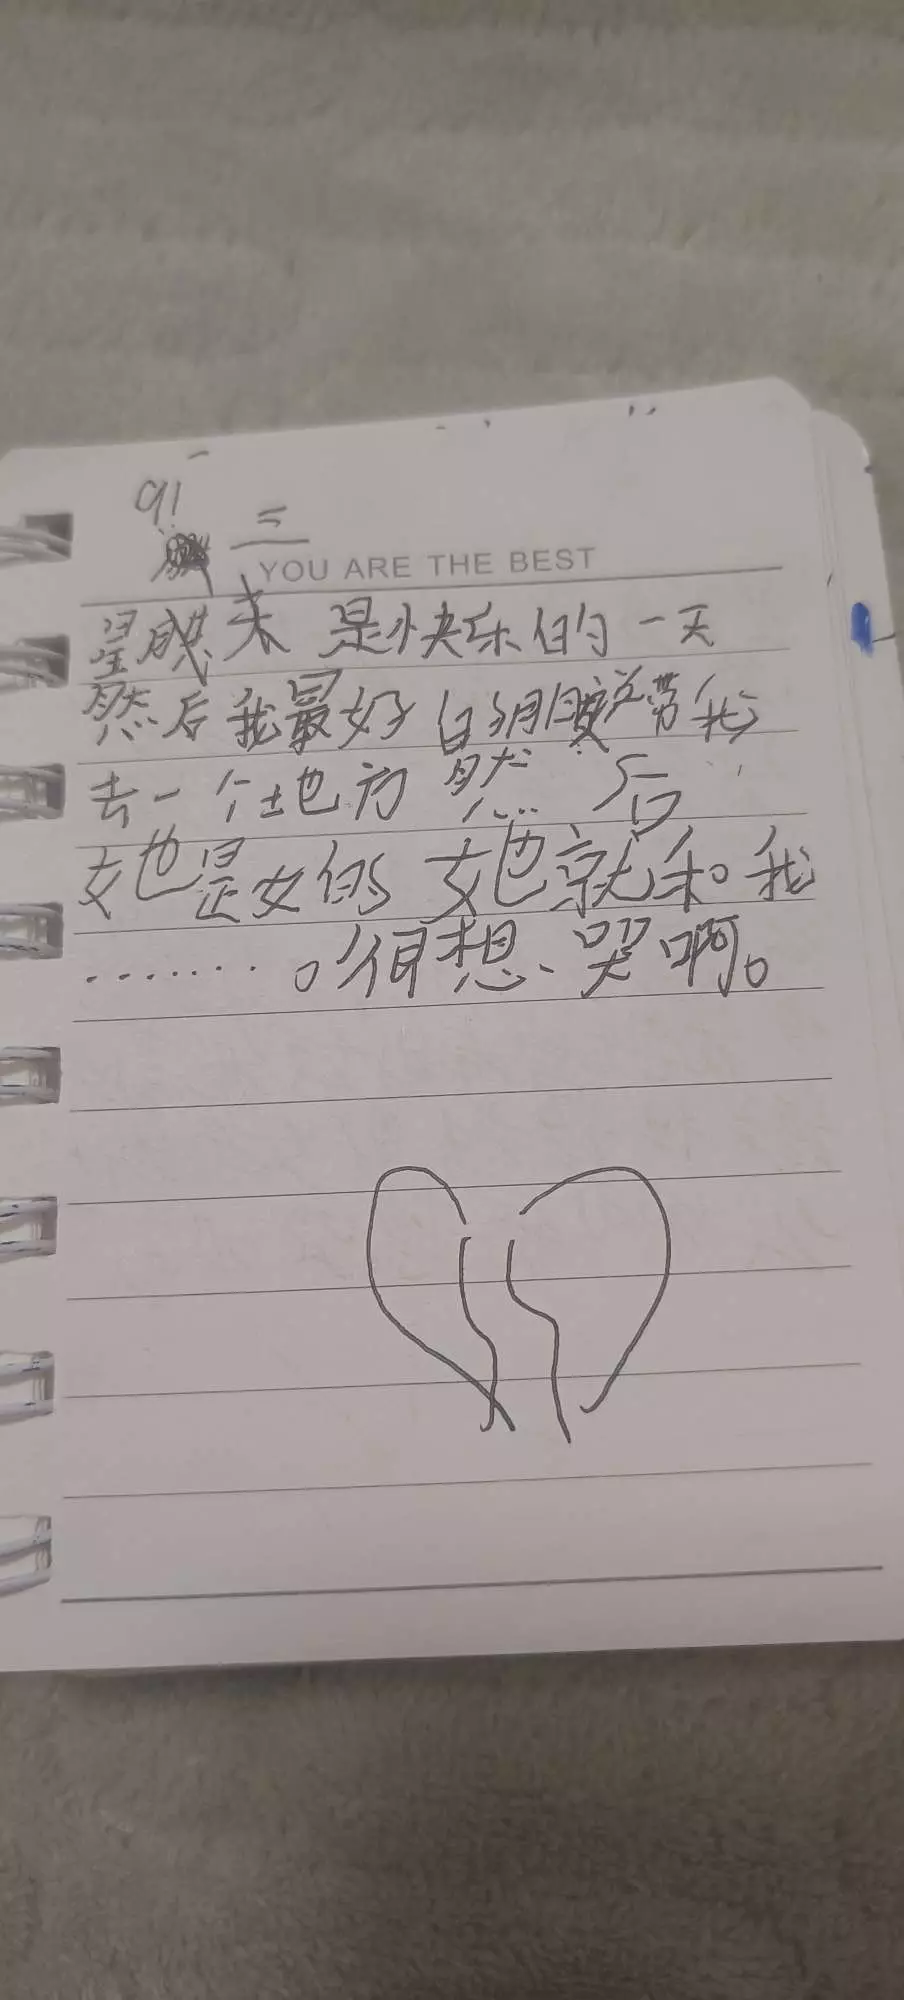 91 =
YOU ARE THE BEST
星期天 是快乐的一天
然后我最好的朋友带我
去一个地方 然后
她是女的 她就和我
.......。很想哭啊。